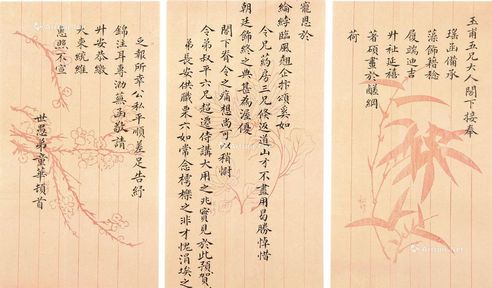 玉甫五兄大人閣下接奉
瑤函備承
藻飾藉稔
履端迪吉
升祉延禧
著碩畫於醲網
荷
寵恩於
綸綍臨風翹企抃頌奚如
令兄藥房三兄倏返道山才不盡用曷勝悼惜
朝廷飾終之典甚為渥優
閣下脊令之痛想尚可以稍慰
令弟叔平六兄超遷侍講大用之兆實見於此預賀
弟長安供職栗六如常念樗櫟之非才愧涓埃之
乏報所幸公私平順差足告紓
錦注耳專泐蕪函敬請
升安恭繳
大柬統維
惠照不宣
世愚弟童華頓首